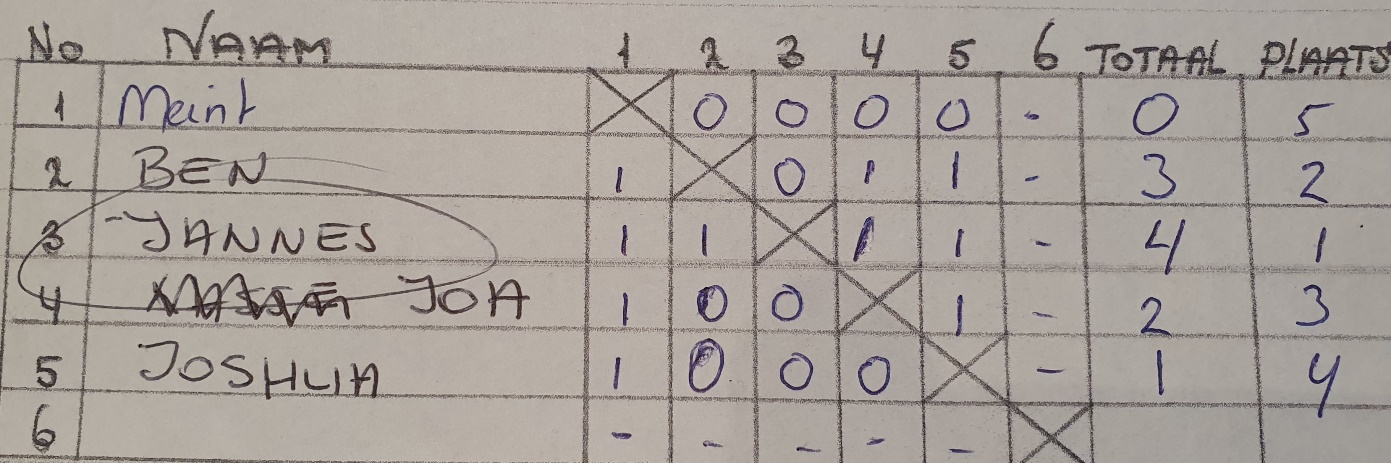 No NAAM 1 2 3 4 5 6 TOTAAL PLAATS
1 Meint 0 0 0 0 - 0 5
2 BEN 1 0 1 1 - 3 2
3 JANNES 1 1 1 1 - 4 1
4 JOA 1 0 0 1 - 2 3
5 JOSHUA 1 0 0 0 - 1 4
6 - - - - -